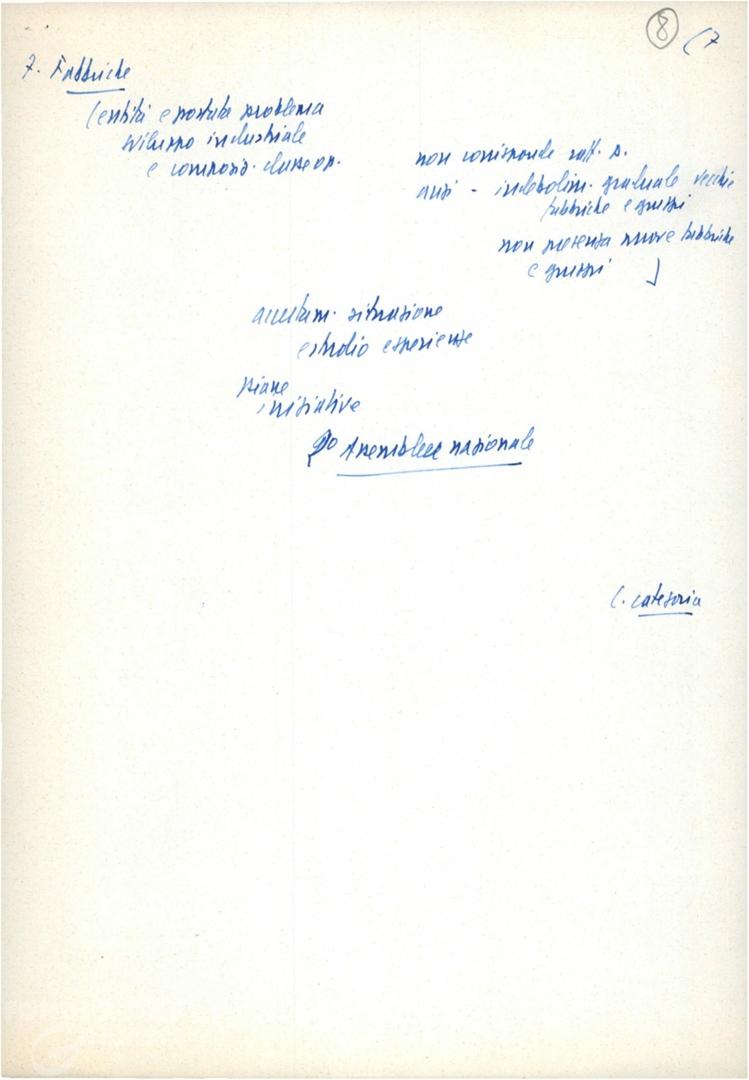 8 (7
7. Fabbriche
(entità e portata problema
sviluppo industriale
e composiz. classe op.
non corrisponde raff. p.
anzi - indebolim. graduale vecchie
fabbriche e gruppi
non presenza nuove fabbriche
e gruppi
accertam. situazione
e studio esperienze
piano
iniziative
Assemblea nazionale
C. categoria